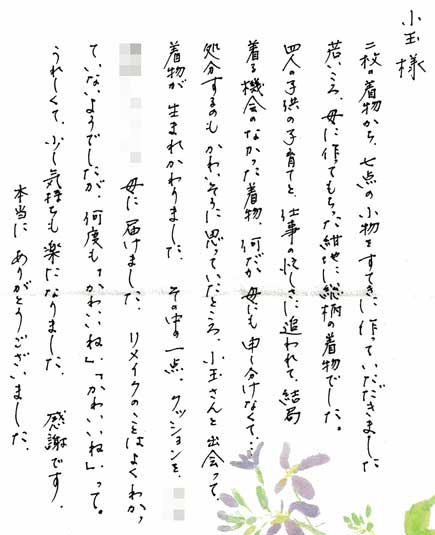 小玉様
二枚の着物から、七点の小物をすてきに作っていだだきました
若いころ、母に作ってもらった紺地に総柄の着物でした。
四人の子供の子育てと、仕事の忙しさに追われて、結局
着る機会のなかった着物、何だか母にも申し分けなくて…
処分するのもかわいそうに思っていたところ、小玉さんと出会って、
着物が生まれかわりました。その中の一点、クッションを、
母に届けました。リメイクのことはよくわかっ
ていないようでしたが、何度も「かわいいね」、「かわいいね」って。
うれしくて、少し気持ちも楽になりました。感謝です。
本当にありがとうございました。